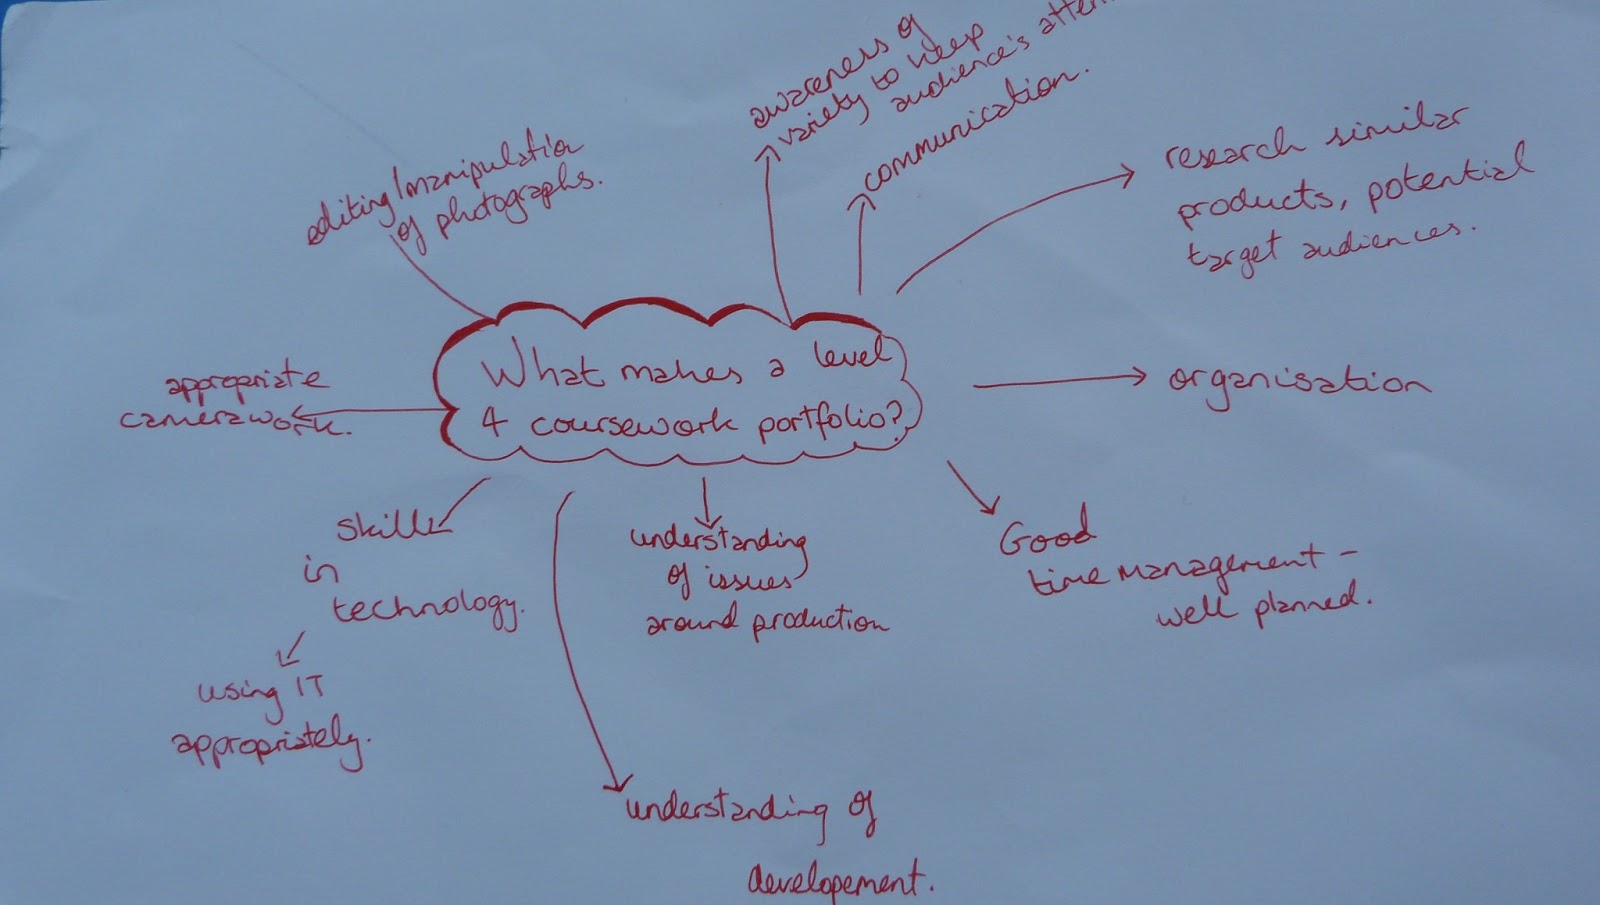 What makes a level
4 coursework portfolio?
editing/manipulation
of photographs.
awareness of
variety to keep
audience's
communication.
research similar
products, potential
target audiences.
organisation
Good
time management -
well planned.
understanding
of issues
around production
understanding of
developement.
skills
in
technology.
using IT
appropriately.
appropriate
camerawork.